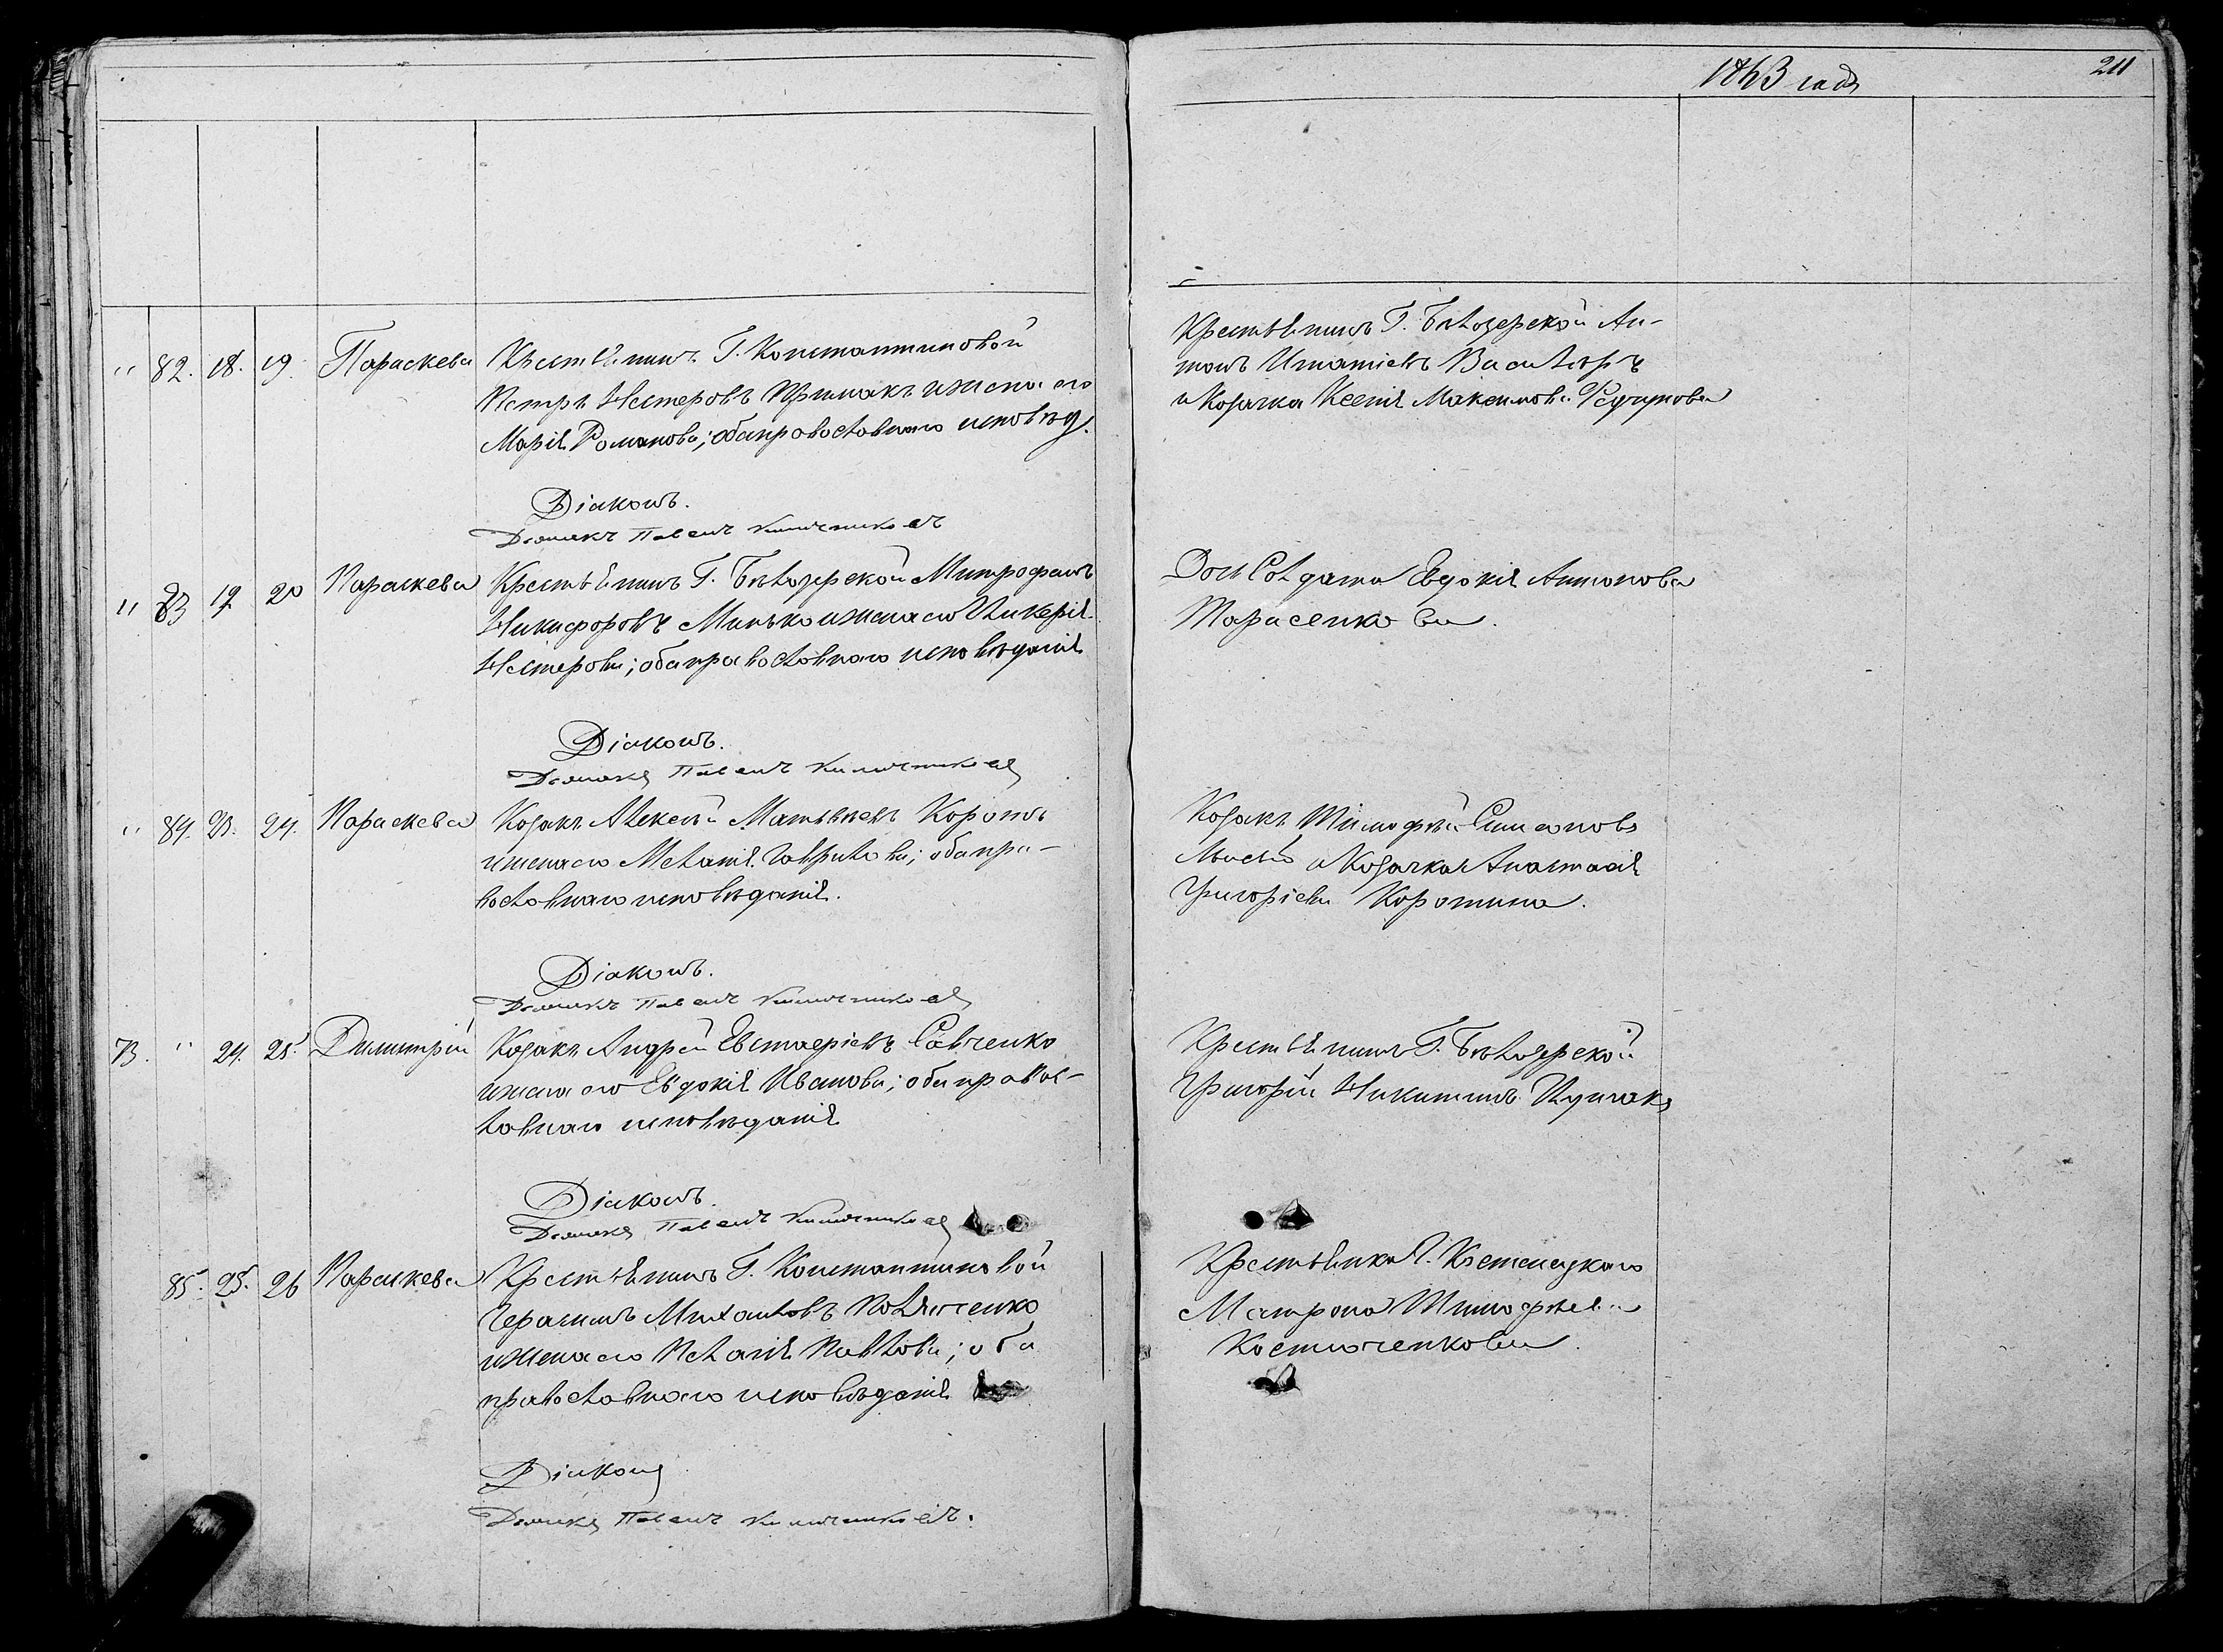 1863 года
211
" 82. 18. 19. Параскева Крестьянинъ Г. Константиновой
Петръ Нестеровъ Примакъ и жена его
Марія Романова; оба православнаго исповѣд.
Діаконъ.
Дьячекъ Павелъ
Крестьянинъ Г. Бѣлозерской Ан-
тонъ Игнатіевъ
и Козачка Ксенія Максимова
" 83 19 20 Параскева Крестьянинъ Г. Бѣлозерской Митрофанъ
Никифоровъ Минько и жена его Гликерія
Нестерова; оба православнаго исповѣданія
Діаконъ.
Дьячекъ Павелъ
Солдата Евдокія Антонова
Тарасенкова.
" 84. 23. 24. Параскева Козакъ Алексѣй Матвѣевъ Коротъ
и жена его Меланія Гаврилова; оба пра-
вославнаго исповѣданія.
Діаконъ.
Дьячекъ Павелъ
Козакъ Тимофѣй Симеоновъ
и Козачка Анастасія
Григоріева Коротина.
73. " 24. 25. Димитрій Козакъ Андрей Евстаѳіевъ Савченко
и жена его Евдокія Иванова; оба правос-
лавнаго исповѣданія
Діаконъ.
Дьячекъ Павелъ
Крестьянинъ Г. Бѣлозерской
Григорій Никитинъ
85. 25. 26 Параскева Крестьянинъ Г. Константиновой
Герасимъ Михаиловъ
и жена его Пелагія Павлова; оба
православнаго исповѣданія
Діаконъ
Дьячекъ Павелъ
Крестьянка Г.
Матрона Тимофѣева
Костюченкова.